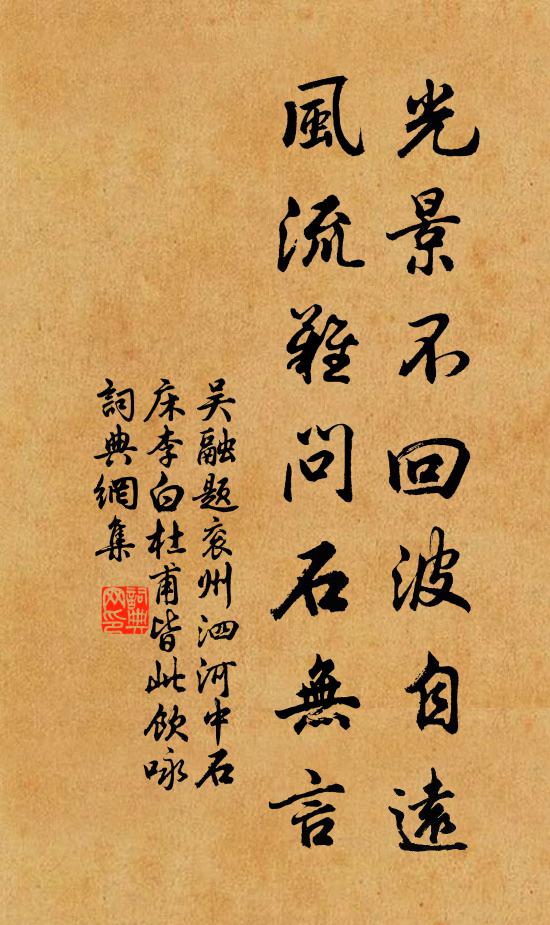 光景不回波自遠
風流難問石無言
吴融題衮州泗河中石
床李白杜甫皆此飲咏
詞典網集
詞典网印